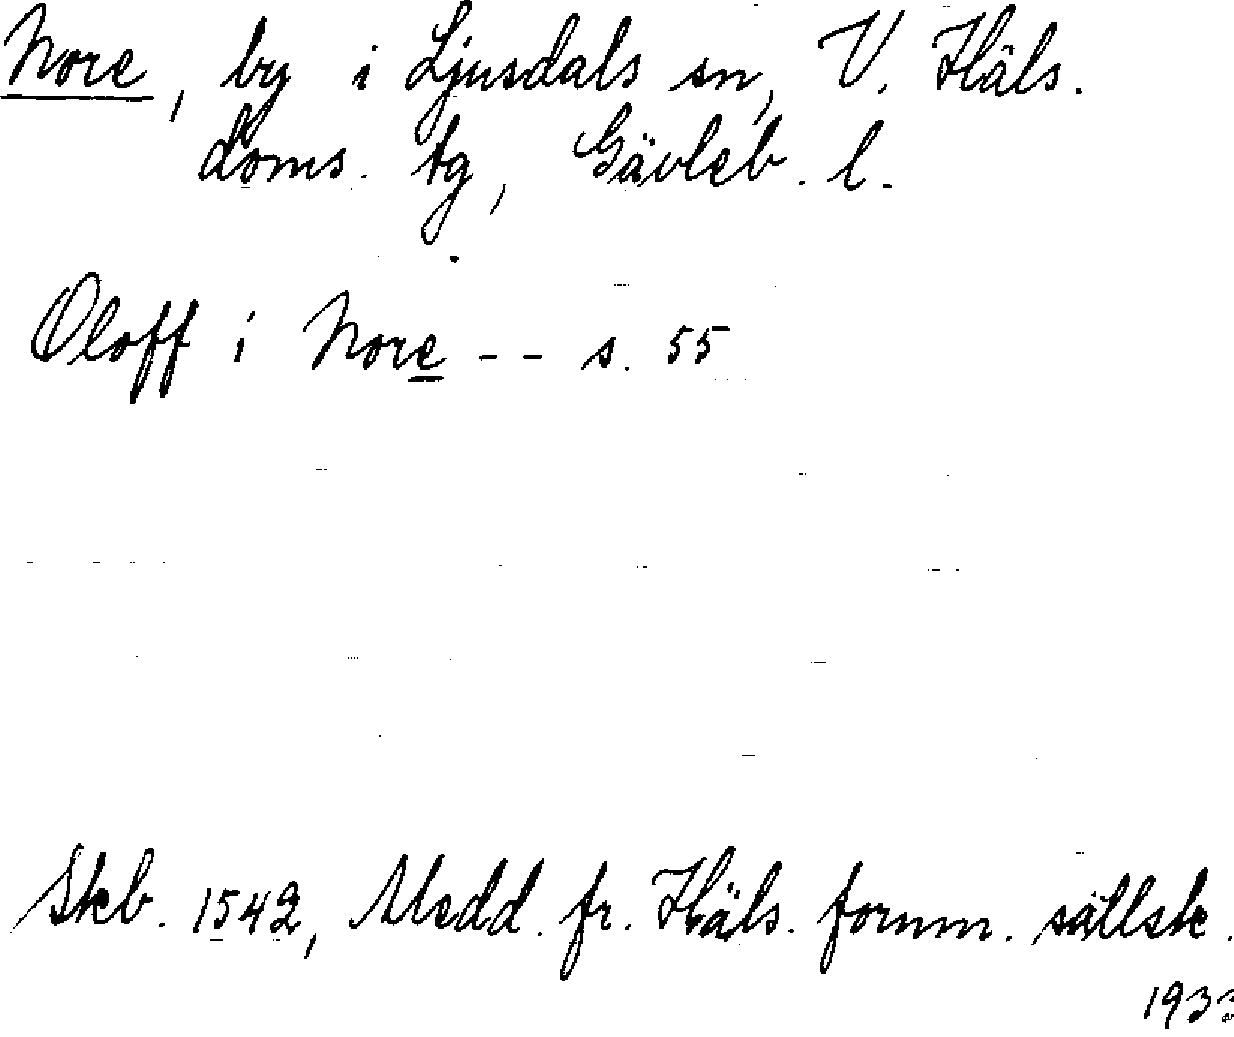 Nore, by i Ljusdals sn, V. Häls.
doms. tg, Gävleb. l.
Oloff i Nore -- s. 55
Skb. 1542, Medd. fr. Häls. fornm. sällsk.
1933